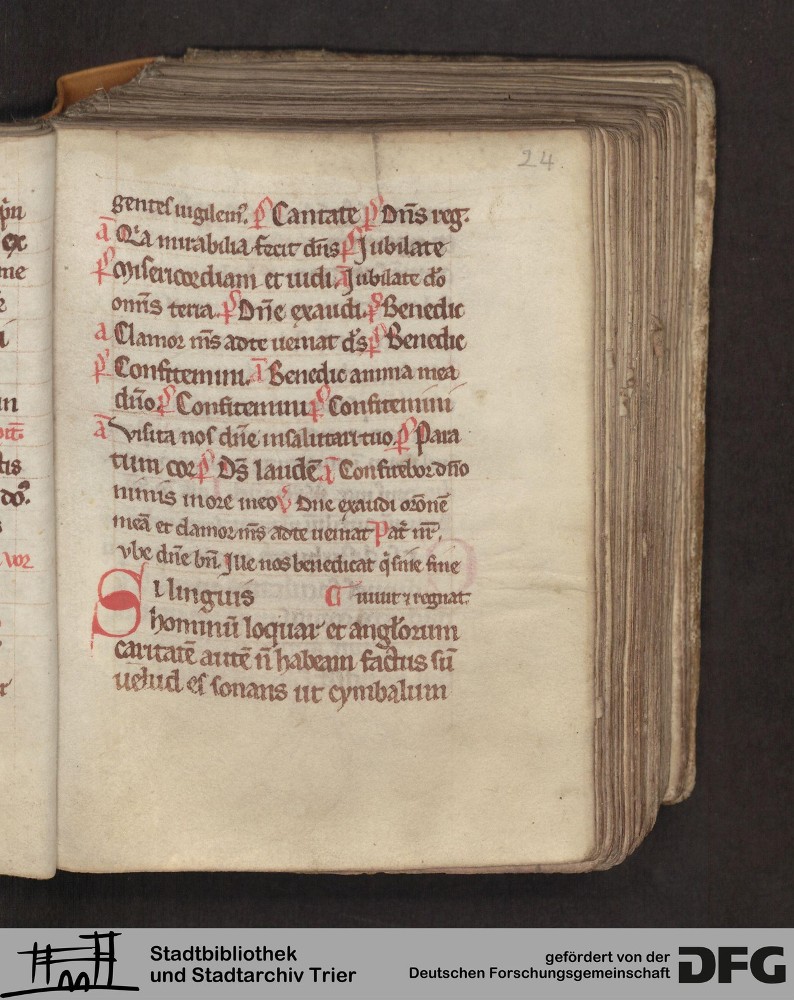 24.
gentes uigilem9. ps Cantate ps Dn̄s reg.
a Q̇a mirabilia fecit dn̄s ps Jubilate
ps Misericordiam et iudi. a Jubilate dō
omn̄s terra. ps Dn̄e exaudi. ps Benedic
a Clamor m̄s adte ueniat ds̄ ps Benedic
ps Confitemini. a Benedic anima mea
dn̄o ps Confitemini ps Confitemini
a Visita nos dn̄e insalutari tuo. ps Para
tum cor ps Ds̄ laudē. a Confitebor dn̄o
nimis in ore meo V Dn̄e exaudi orōnē
meā et clamor m̄s adte ueniat Pat̄ nr̄.
vbe dn̄e bn̄. Jlle nos benedicat q̄ sine fine
Si linguis uiuit ⁊ regnat.
hominū loquar et angl̄orum
caritatē autē n̄ habeam factus sū
uelud es sonans ut cymbalum
p̄n
ex
me
i
in
tis
do9.
vor
Stadtbibliothek
und Stadtarchiv Trier
gefördert von der
Deutschen Forschungsgemeinschaft
DFG